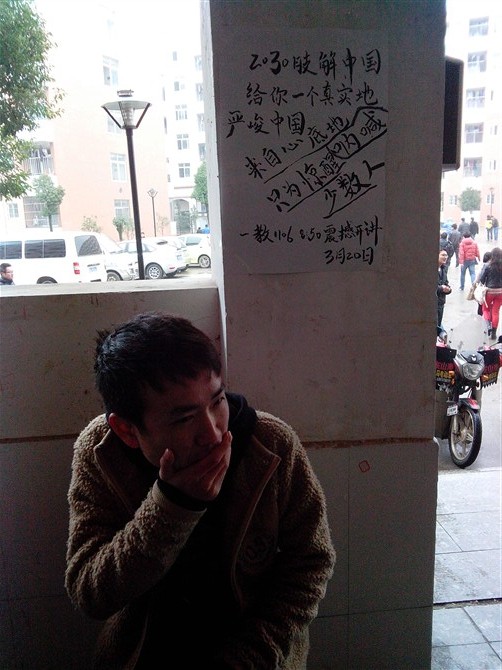 2030肢解中国
给你一个真实地
严峻中国
来自心底地呐喊
只为惊醒
少数人
一教1106 8:50震撼开讲
3月20日